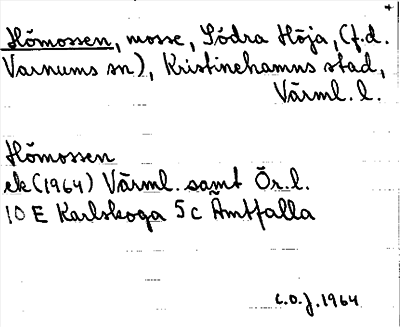 Hömossen, mosse, Södra Höja, (f.d.
Varnums sn), Kristinehamns stad,
Värml. l.
Hömossen
ek (1964) Värml. samt Ör. l.
10 E Karlskoga 5 c Åmtfalla
C.O.J. 1964